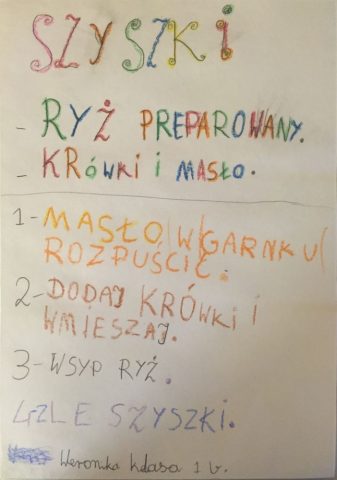 SZYSZKI
- RYŻ PREPAROWANY.
- KRÓWKI I MASŁO.
1- MASŁO W GARNKU
ROZPUŚCIĆ.
2- DODAJ KRÓWKI I
WMIESZAJ.
3- WSYP RYŻ.
4- ZLE SZYSZKI.
Weronika klasa 1 b.